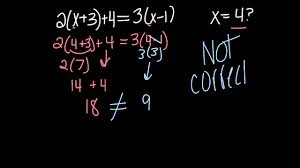 2(x+3)+4=3(x-1) x=4?
2(4+3)+4=3(4-1)
2(7) 3(3)
14 + 4
18 ≠ 9
NOT
CORRECT